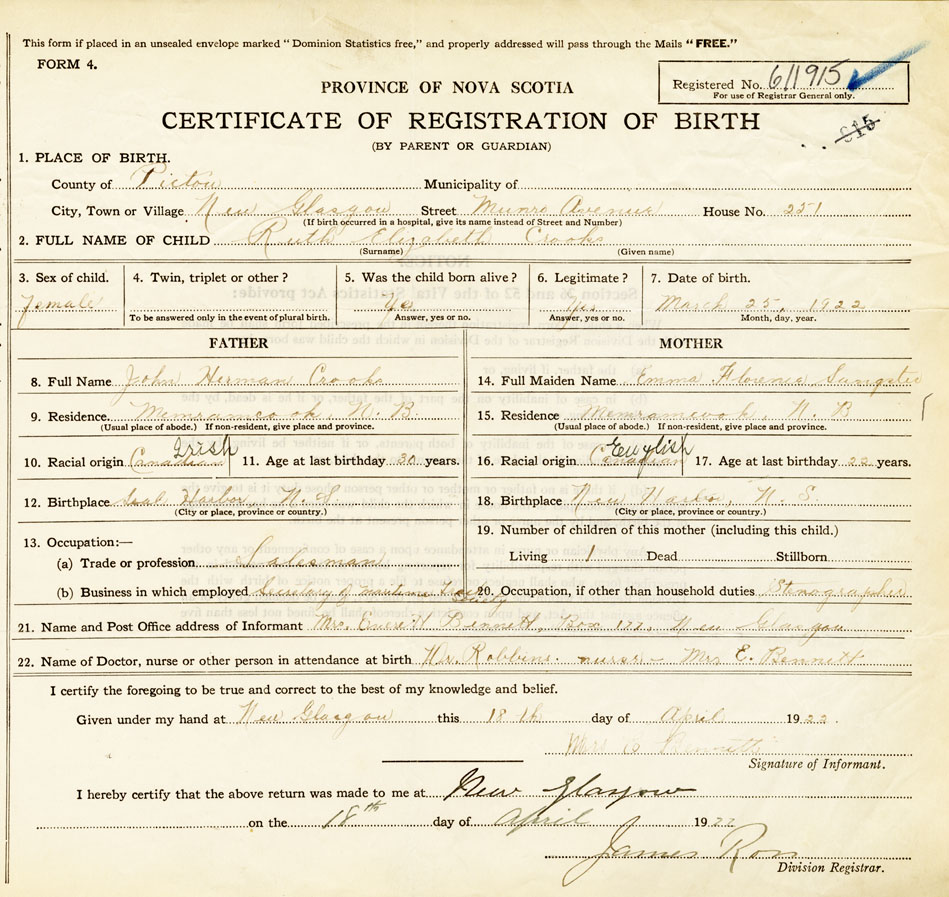 This form if placed in an unsealed envelope marked "Dominion Statistics free," and properly addressed will pass through the Mails "FREE."
FORM 4.
PROVINCE OF NOVA SCOTIA
Registered No. 611915
For use of Registrar General only.
CERTIFICATE OF REGISTRATION OF BIRTH
(BY PARENT OR GUARDIAN)
1. PLACE OF BIRTH.
County of Pictou Municipality of
City, Town or Village New Glasgow Street Munro Avenue House No. 251
(If birth occurred in a hospital, give its name instead of Street and Number)
2. FULL NAME OF CHILD Ruth Elizabeth Crooks
(Surname) (Given name)
3. Sex of child. 4. Twin, triplet or other? 5. Was the child born alive? 6. Legitimate? 7. Date of birth.
female Yes Yes March 25, 1922
To be answered only in the event of plural birth. Answer, yes or no. Answer, yes or no. Month, day, year.
FATHER MOTHER
8. Full Name John Herman Crooks 14. Full Maiden Name Emma Florence Sangster
9. Residence Memramcook, N. B 15. Residence Memramcook, N. B
(Usual place of abode.) If non-resident, give place and province. (Usual place of abode.) If non-resident, give place and province.
Irish English
10. Racial origin Canadian 11. Age at last birthday 30 years. 16. Racial origin Canadian 17. Age at last birthday 22 years.
12. Birthplace Seal Harbor, N. S 18. Birthplace New Harbor, N. S.
(City or place, province or country.) (City or place, province or country.)
13. Occupation:— 19. Number of children of this mother (including this child.)
(a) Trade or profession Salesman Living 1 Dead Stillborn
(b) Business in which employed Secretary of maritime 20. Occupation, if other than household duties Stenographer
21. Name and Post Office address of Informant Mrs. Everett Bennett, Box 177, New Glasgow
22. Name of Doctor, nurse or other person in attendance at birth Dr. Robbins. nurse - Mrs E. Bennett
I certify the foregoing to be true and correct to the best of my knowledge and belief.
Given under my hand at New Glasgow this 18th day of April 1922.
Mrs E Bennett
Signature of Informant.
I hereby certify that the above return was made to me at New Glasgow
on the 18th day of April 1922
James Ross
Division Registrar.